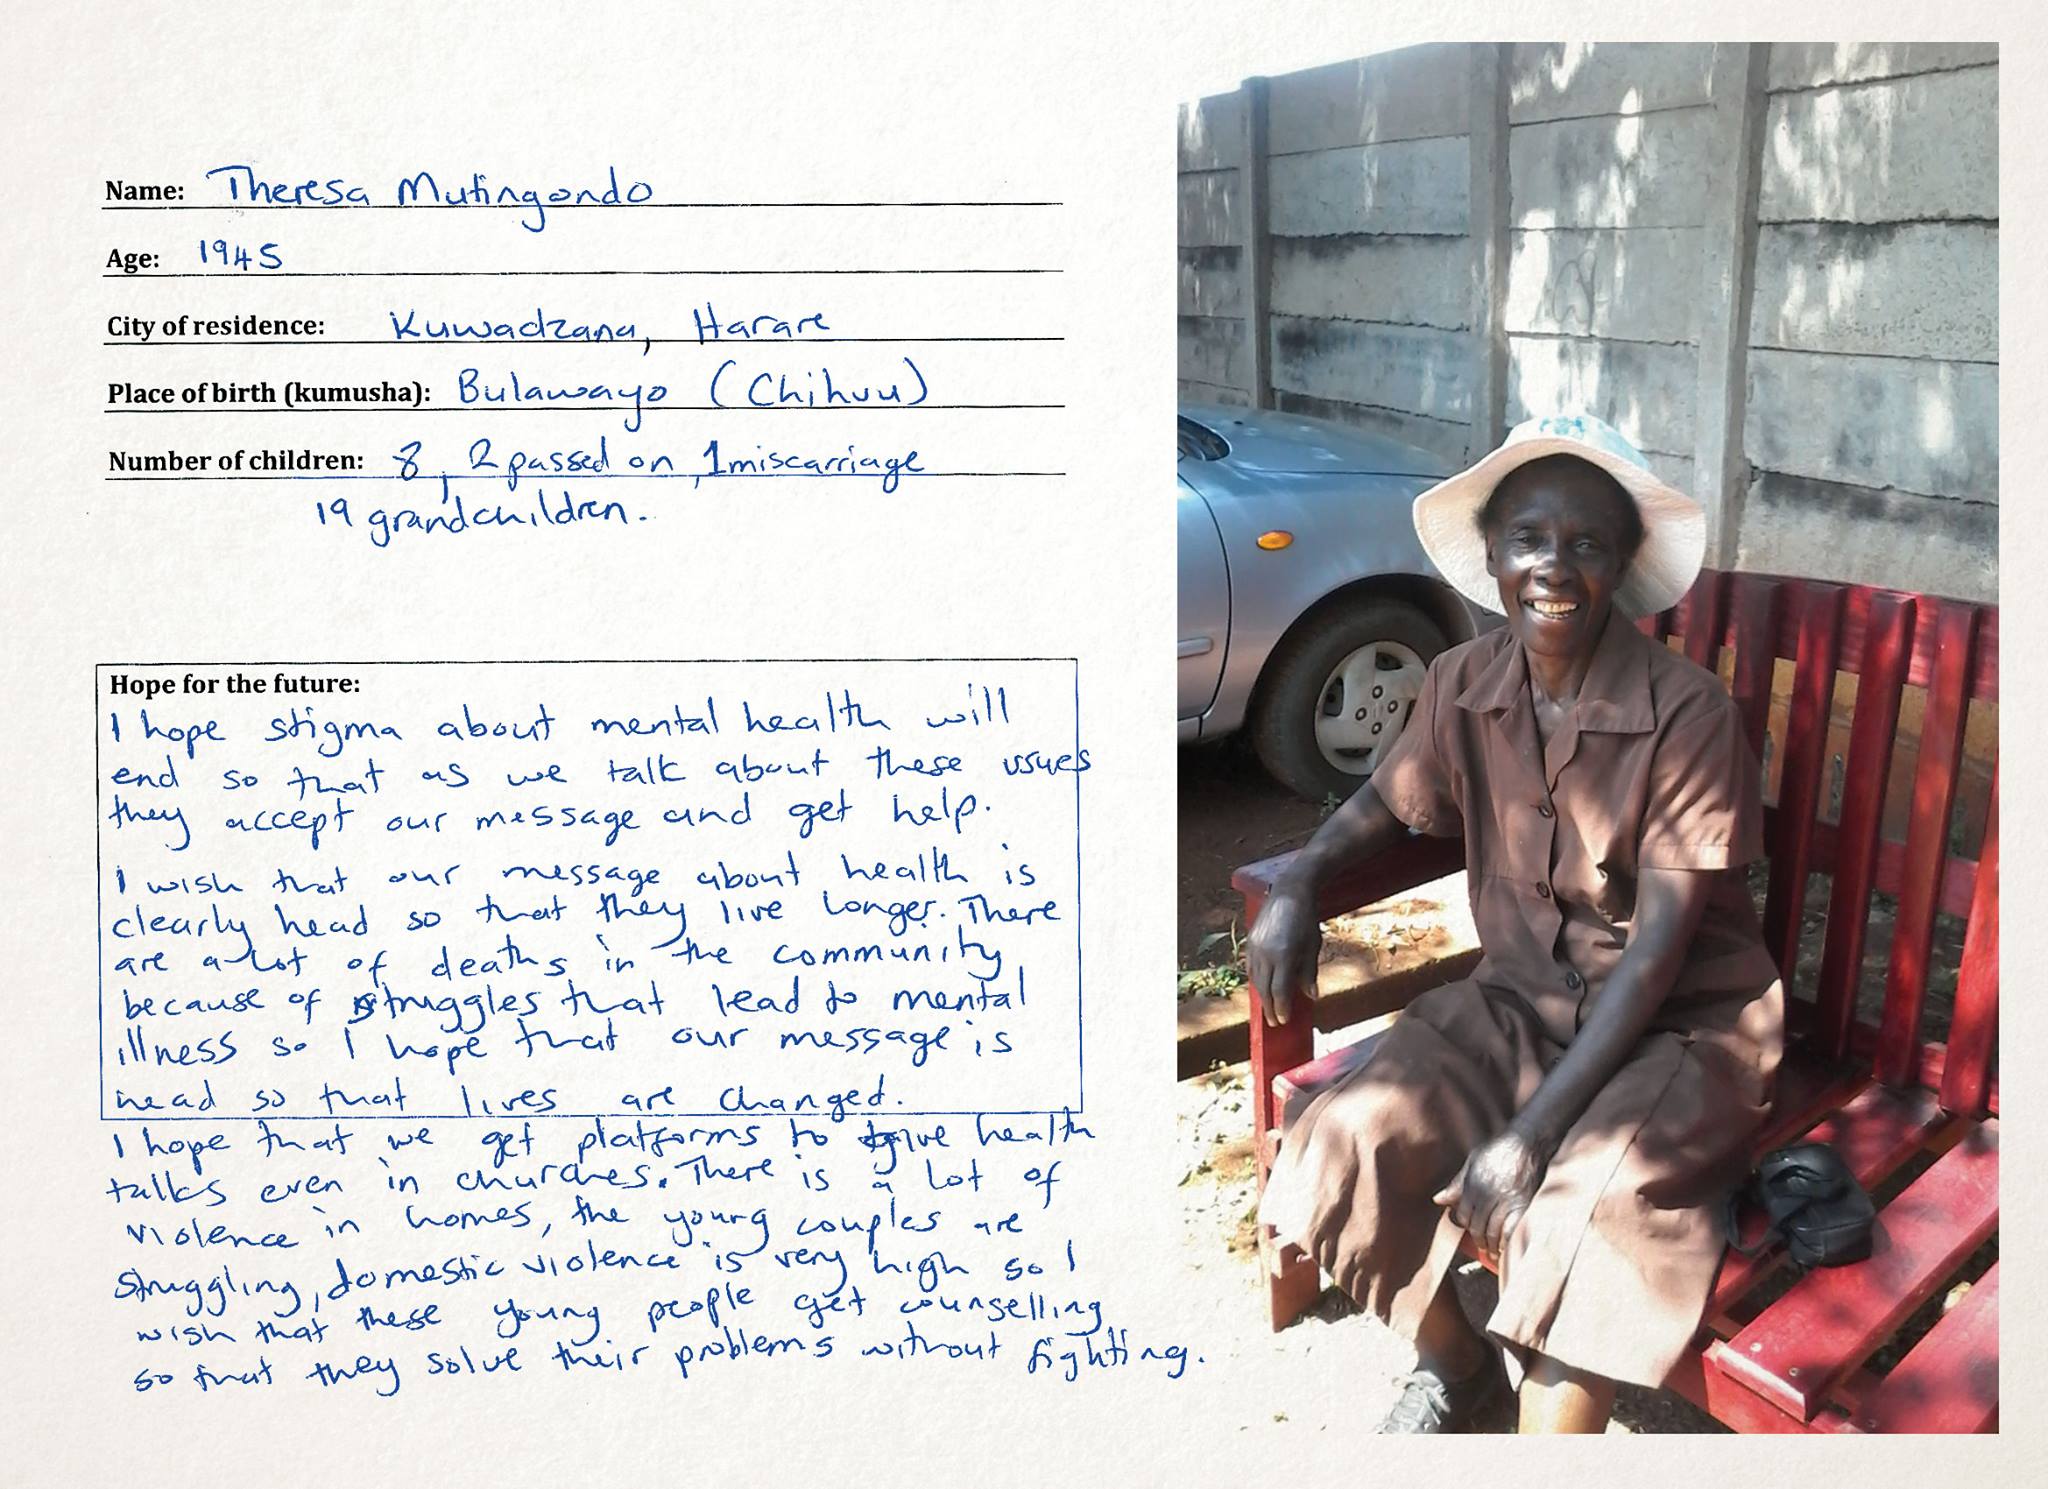 Name: Theresa Mutingondo
Age: 1945
City of residence: Kuwadzana, Harare
Place of birth (kumusha): Bulawayo (Chihuu)
Number of children: 8, 2 passed on, 1 miscarriage
19 grandchildren.
Hope for the future:
I hope stigma about mental health will
end so that as we talk about these issues
they accept our message and get help.
I wish that our message about health is
clearly head so that they live longer. There
are a lot of deaths in the community
because of struggles that lead to mental
illness so I hope that our message is
head so that lives are changed.
I hope that we get platforms to give health
talks even in churches. There is a lot of
violence in homes, the young couples are
struggling, domestic violence is very high so I
wish that these young people get counselling
so that they solve their problems without fighting.